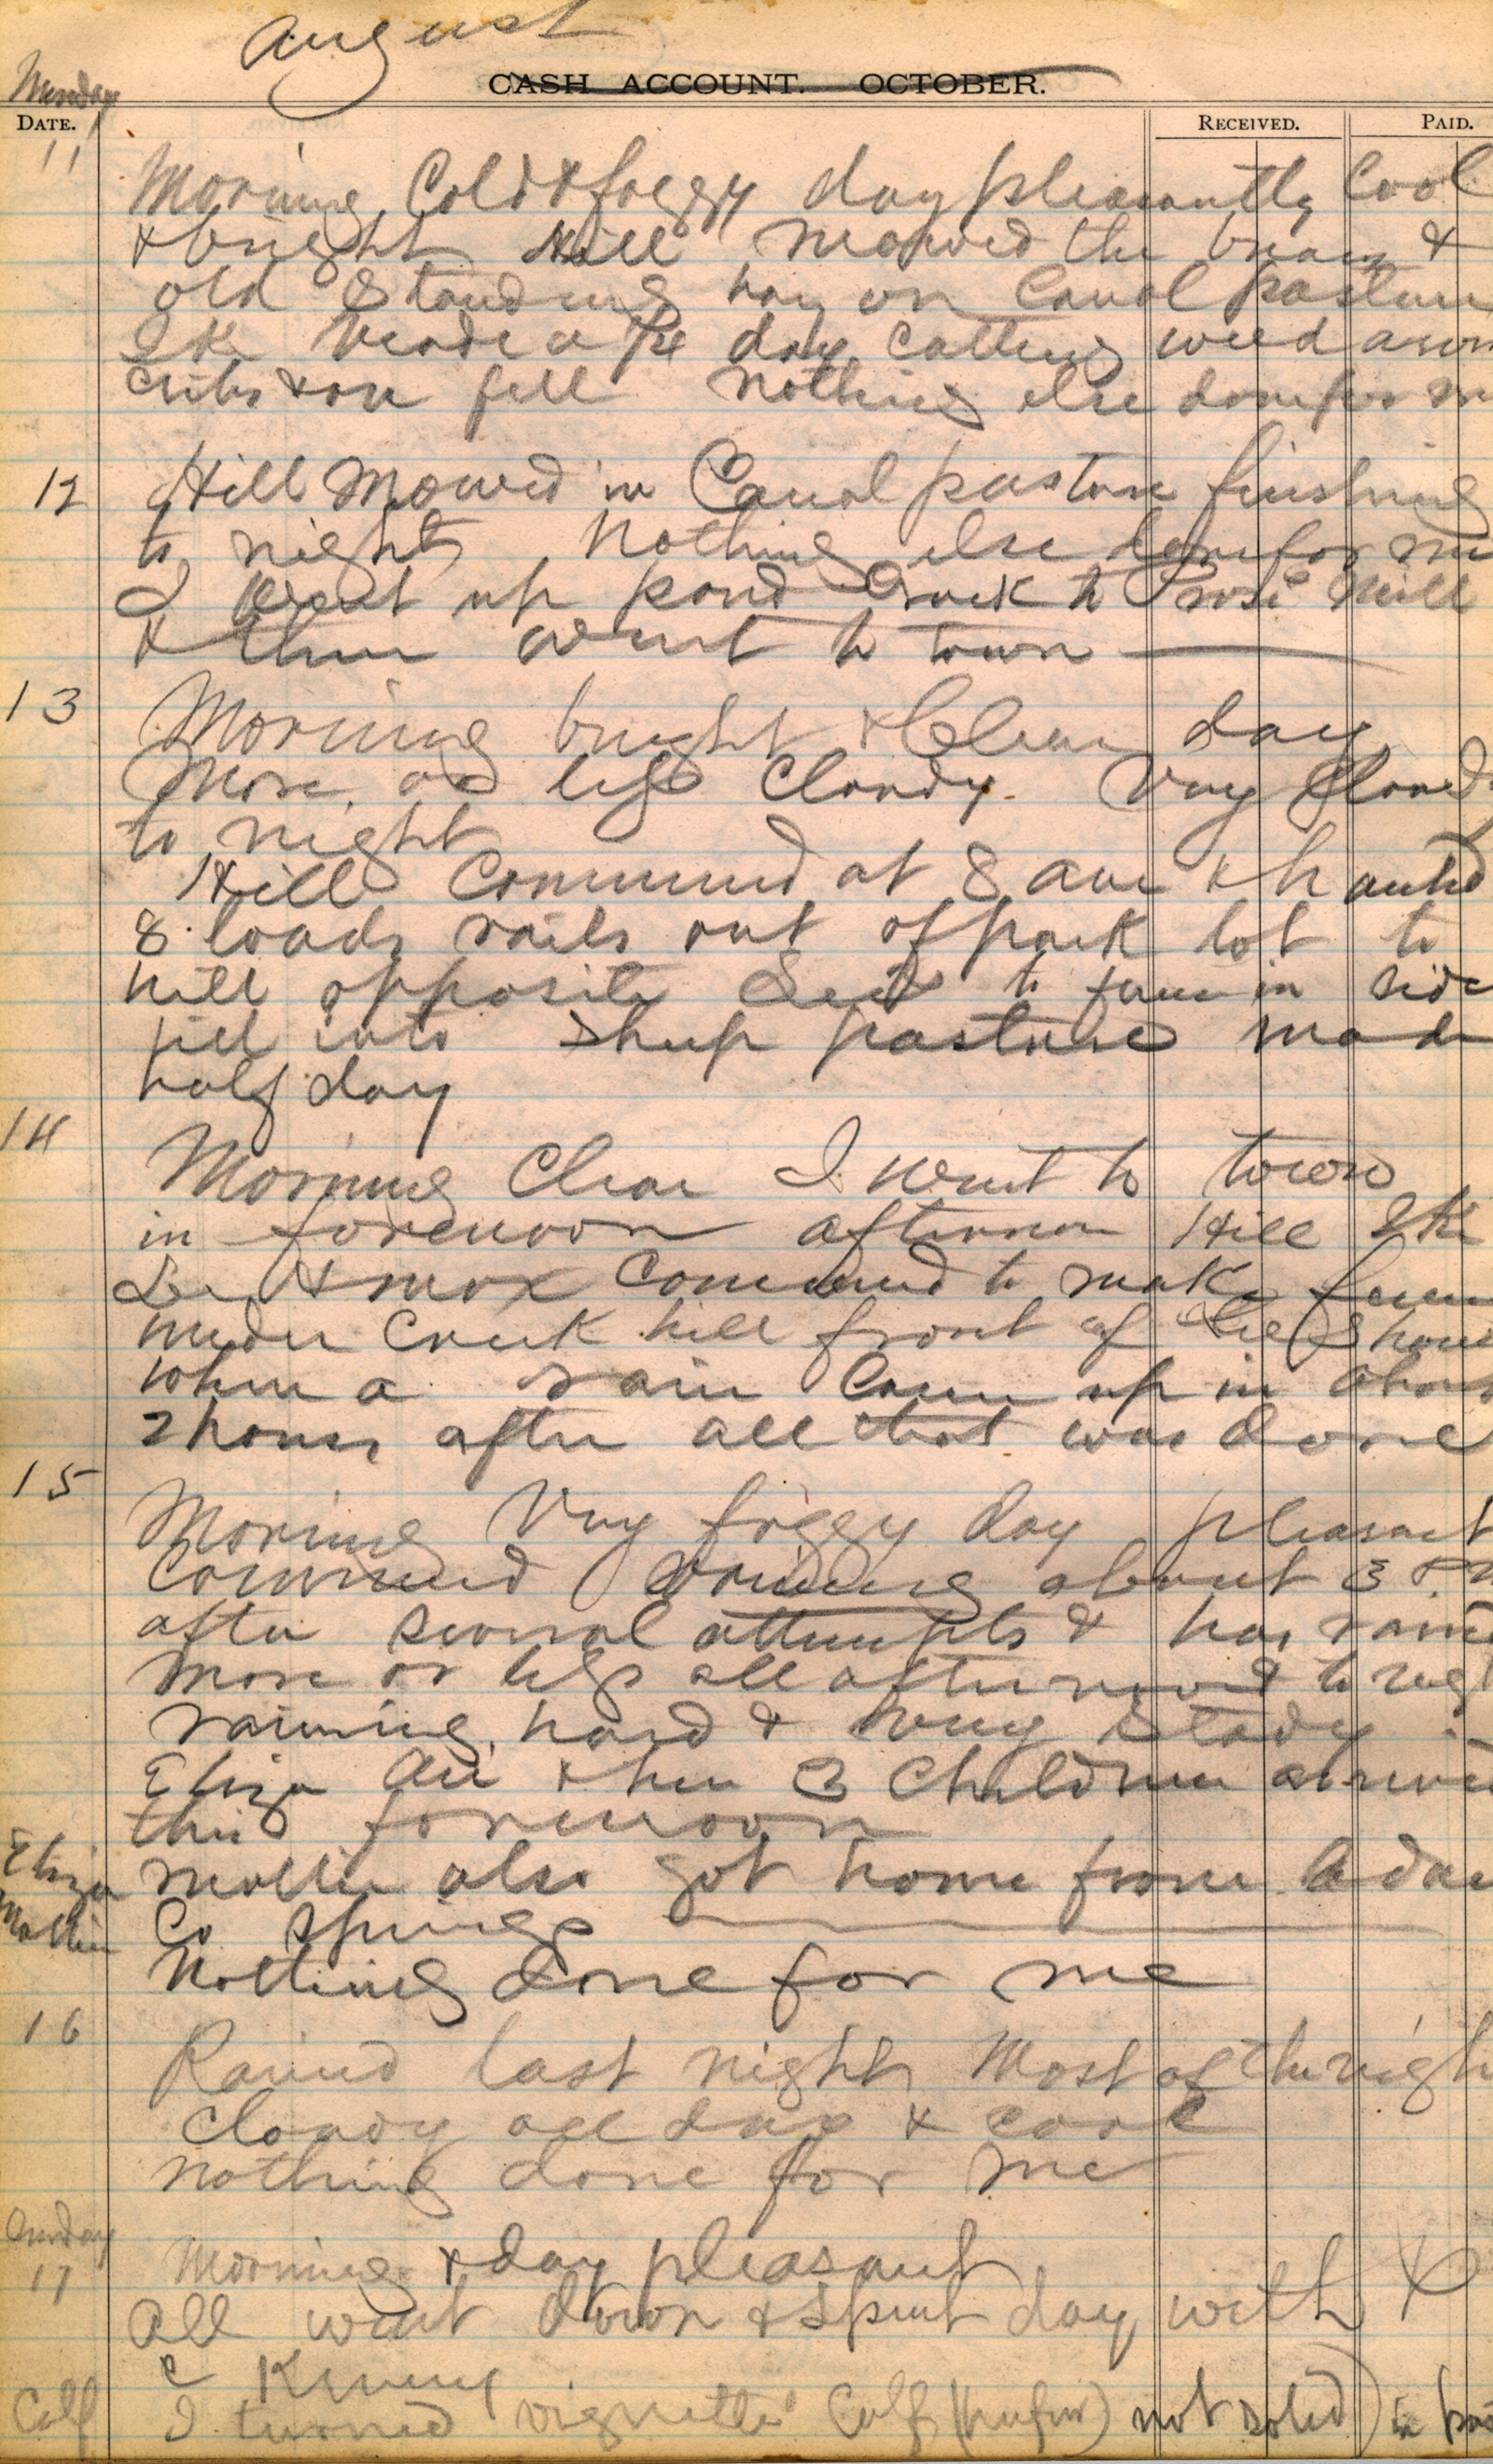 August
Monday
CASH ACCOUNT. OCTOBER.
DATE. RECEIVED. PAID.
11 Morning Cold & foggy day pleasantly Cool
& bright Hill Mowed the &
old Standing hay on Canal pasture
Ike made a day Cutting weed
cribs & on fill Nothing else done for
12 Hill Mowed in Canal pasture finishing
to night Nothing else done for me
I went up pond Creek to Mill
& then went to town
13 Morning bright & Clear day
More or less Cloudy. Very Cloudy
to night
Hill Commenced at 8 am & hauled
8 loads rails out of park lot to
hill opposite to fence in side
hill into Sheep pasture made
half day
14 Morning Clear I went to town
in forenoon afternoon Hill Ike
Lee & Max Commenced to make fence
under Creek hill front of
when a rain Came up in about
2 hours after all that was done
15 Morning Very foggy day pleasant
Commenced raining about 3 P.M
after several attempts & has rained
More or less all afternoon & to night
raining hard & very Steady
Eliza & her 3 Children arrived
this forenoon
Eliza Mollie also got home from Adams
Mollie Co Springs
Nothing done for me
16 Rained last night Most of the night
Cloudy all day & cool
nothing done for me
Sunday
17 Morning & day pleasant
All went down & spent day with
C Kinney
Calf I turned vignette Calf (heifer) not in